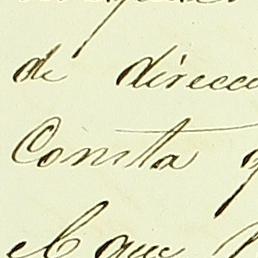 de direcci
Consta q
el que